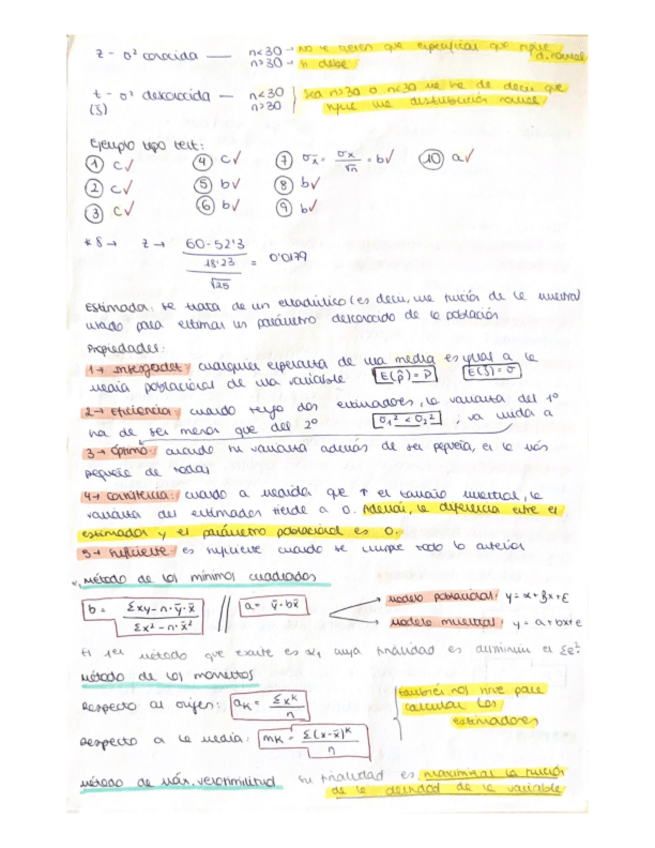 z - σ² conocida — n<30 → no te tienen que especificar que sigue d. normal
n>30 → si debe
t - σ² desconocida — n<30 } sea n>30 o n<30 me ha de decir que
(ŝ) n>30 sigue una distribución normal
Ejemplo tipo test:
① c✓ ④ c✓ ⑦ σx̄ = σx/√n = b✓ ⑩ a✓
② c✓ ⑤ b✓ ⑧ b✓
③ c✓ ⑥ b✓ ⑨ b✓
* 8 → z → 60-52'3 / 18'23 / √25 = 0'0179
Estimador: se trata de un estadístico (es decir, una función de la muestra)
usado para estimar un parámetro desconocido de la población
Propiedades:
1→ Insegadez: cualquier esperanza de una media es igual a la
media poblacional de una variable E(p̂) = P E(ŝ) = σ
2→ Eficiencia: cuando tengo dos estimadores, la varianza del 1º
ha de ser menor que del 2º σ₁² < σ₂² ; va unida a
3→ Óptimo: cuando su varianza además de ser pequeña, es la más
pequeña de todas
4→ Consistencia: cuando a medida que ↑ el tamaño muestral, la
varianza del estimador tiende a 0. Además, la diferencia entre el
estimador y el parámetro poblacional es 0.
5→ Suficiente: es suficiente cuando se cumple todo lo anterior
*₁ Método de los mínimos cuadrados
b = Σxy - n·ȳ·x̄ / Σx² - n·x̄² // a = ȳ - bx̄ → modelo poblacional: y = α + βx + ε
→ modelo muestral: y = a + bx + e
El 1er método que existe es *₁, cuya finalidad es disminuir el Σe²
Método de los momentos
Respecto al origen: aK = Σx^K / n } también nos sirve para
calcular los
estimadores
Respecto a la media: mK = Σ(x-x̄)^K / n
Método de máx. verosimilitud su finalidad es maximizar la función
de la densidad de la variable